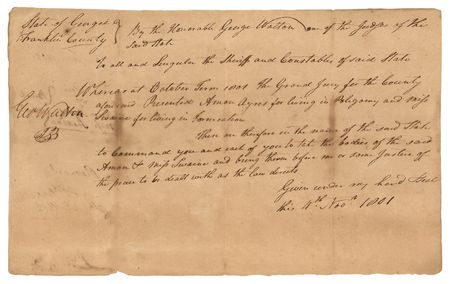 State of Georgia
Franklin County
By the Honorable George Walton one of the Judges of the
said State
To all and Singular the Sheriff and Constables of said State
Whereas at October Term 1801 the Grand Jury for the County
aforesaid Presented Aman Ayres for living in Poligamy and Miss
Swaine for living in Fornication
Geo Walton
These are therefore in the name of the said State
to Command you and each of you to take the bodies of the said
Aman & Miss Swaine and bring them before me or some Justice of
the peace to be dealt with as the law directs
Given under my hand Seal
this 4th Novr 1801